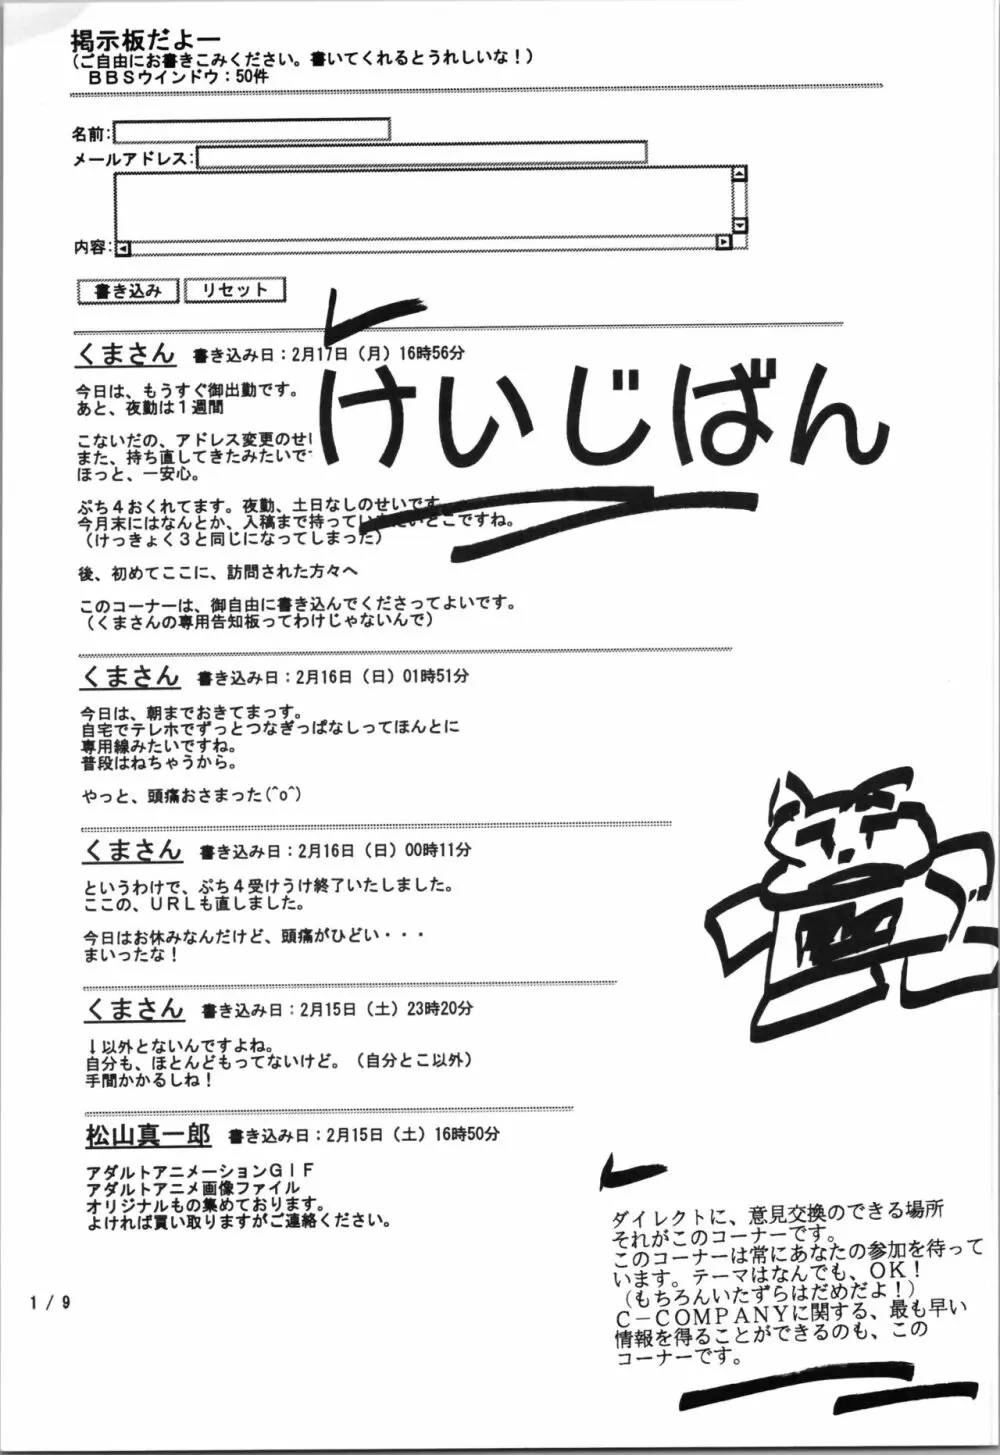 掲示板だよー
(ご自由にお書きこみください。書いてくれるとうれしいな！)
ＢＢＳウインドウ：50件
名前:
メールアドレス:
内容:
書き込み リセット
くまさん 書き込み日：2月17日（月）16時56分
けいじばん
今日は、もうすぐ御出勤です。
あと、夜勤は１週間
こないだの、アドレス変更のせい
また、持ち直してきたみたいで
ほっと、一安心。
ぷち４おくれてます。夜勤、土日なしのせいです。
今月末にはなんとか、入稿まで持って いきたいとこですね。
（けっきょく３と同じになってしまった）
後、初めてここに、訪問された方々へ
このコーナーは、御自由に書き込んでくださってよいです。
（くまさんの専用告知板ってわけじゃないんで）
くまさん 書き込み日：2月16日（日）01時51分
今日は、朝までおきてまっす。
自宅でテレホでずっとつなぎっぱなしってほんとに
専用線みたいですね。
普段はねちゃうから。
やっと、頭痛おさまった(^o^)
くまさん 書き込み日：2月16日（日）00時11分
というわけで、ぷち４受けうけ終了いたしました。
ここの、ＵＲＬも直しました。
今日はお休みなんだけど、頭痛がひどい・・・
まいったな！
くまさん 書き込み日：2月15日（土）23時20分
↓以外とないんですよね。
自分も、ほとんどもってないけど。（自分とこ以外）
手間かかるしね！
松山真一郎 書き込み日：2月15日（土）16時50分
アダルトアニメーションＧＩＦ
アダルトアニメ画像ファイル
オリジナルもの集めております。
よければ買い取りますがご連絡ください。
ダイレクトに、意見交換のできる場所
それがこのコーナーです。
このコーナーは常にあなたの参加を待って
います。テーマはなんでも、ＯＫ！
（もちろんいたずらはだめだよ！）
Ｃ－ＣＯＭＰＡＮＹに関する、最も早い
情報を得ることができるのも、この
コーナーです。
1 / 9